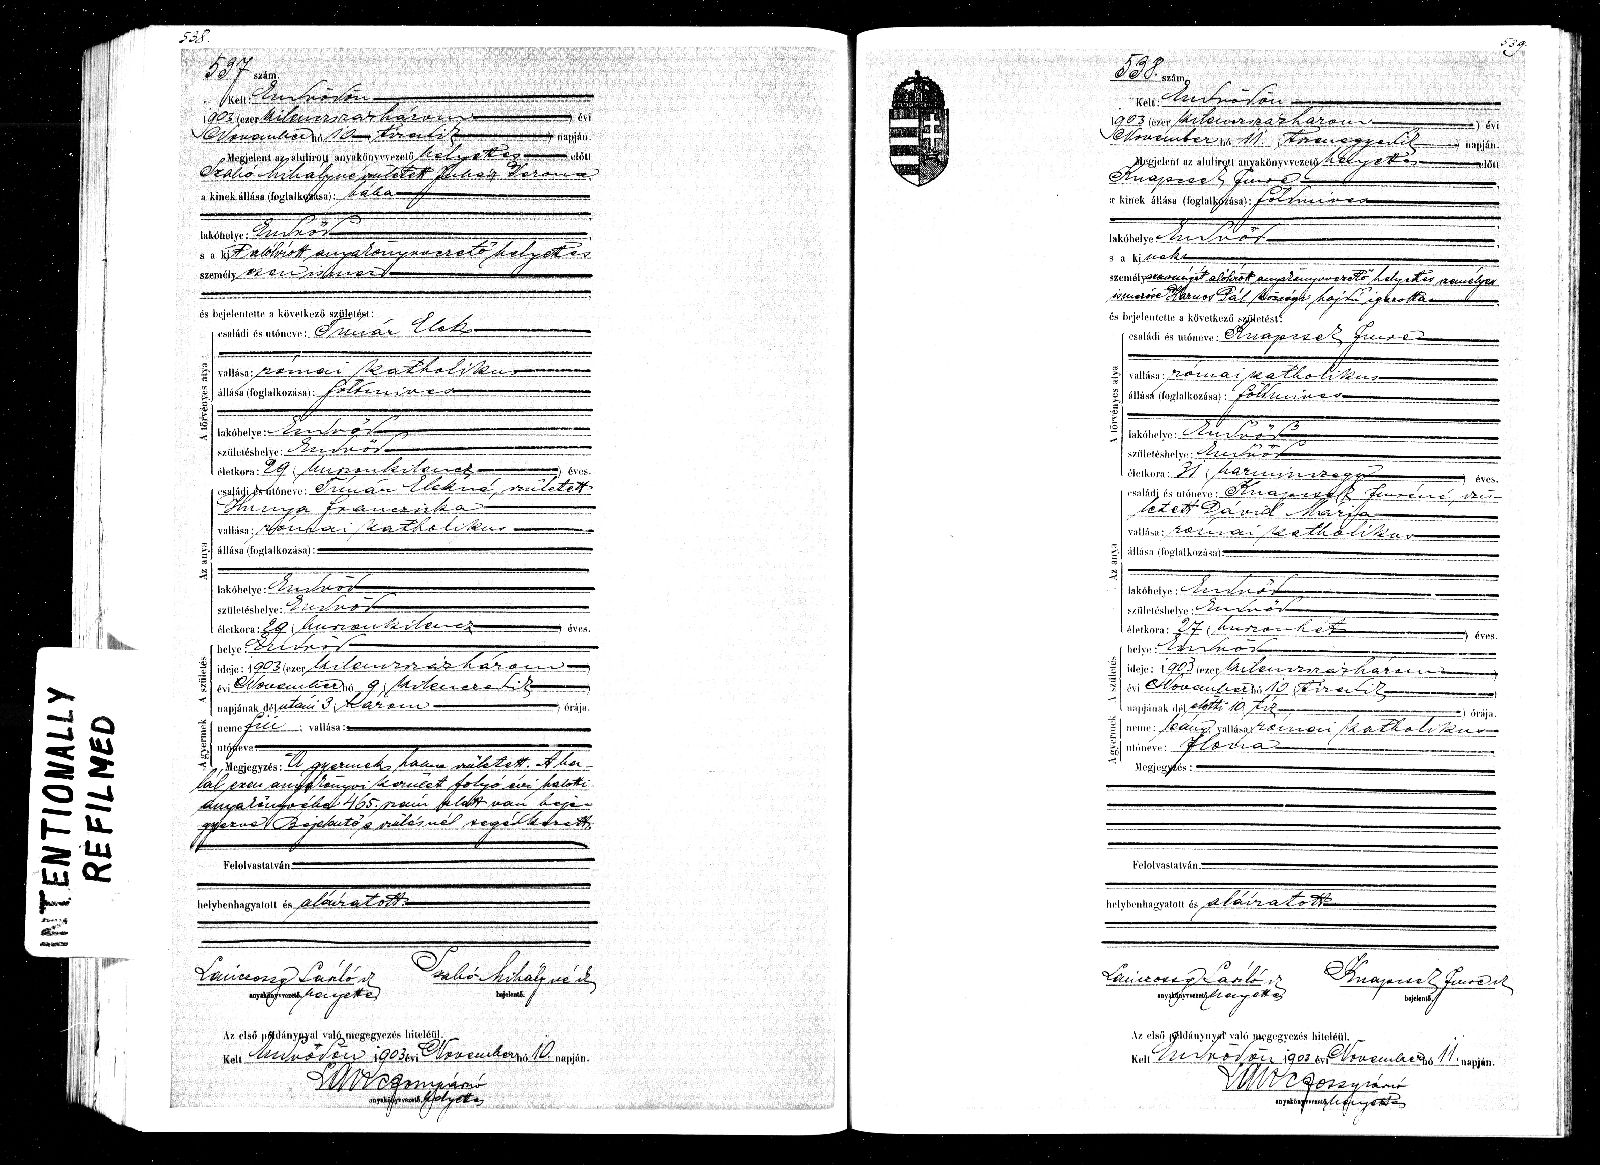 538.
537 szám.
Kelt: Endrődön
1903 (ezer kilenczszázhárom) évi
November hó 10 tizedik napján.
Megjelent az alulirott anyakönyvvezető helyettes előtt
Szabó Mihályné született Juhász Verona
a kinek állása (foglalkozása): bába
lakóhelye: Endrőd
s a kit alólirott anyakönyvvezető helyettes
személyesen ismer
és bejelentette a következő születést:
A törvényes atya
családi és utóneve: Timár Elek
vallása: római katholikus
állása (foglalkozása): földmives
lakóhelye: Endrőd
születéshelye: Endrőd
életkora: 29 (huszonkilencz) éves.
Az anya
családi és utóneve: Timár Elekné, született
Hunya Franciska
vallása: római katholikus
állása (foglalkozása):
lakóhelye: Endrőd
születéshelye: Endrőd
életkora: 29 (huszonkilencz) éves.
A születés
helye: Endrőd
ideje: 1903 (ezer kilenczszázhárom)
évi November hó 9 (kilenczedik)
napjának délutáni 3 (három) órája.
A gyermek
neme: fiú; vallása:
utóneve
Megjegyzés: A gyermek halva született. A ha-
lál ezen anyakönyvi kerület folyó évi halotti
anyakönyvében 465. szám alatt van beje-
gyezve. Bejelentő a szülésnél segédkezett
Felolvastatván
helybenhagyatott és aláiratott.
László s.k. Szabó Mihályné s.k.
anyakönyvvezető helyettes bejelentő.
Az első példánynyal való megegyezés hiteléül.
Kelt Endrődön 1903 évi November hó 10. napján.
anyakönyvvezető helyettes
539.
538. szám.
Kelt: Endrődön
1903 (ezer kilenczszázhárom) évi
November hó 11. (tizenegyedik) napján.
Megjelent az alulirott anyakönyvvezető helyettes előtt
Knapcsek Imre
a kinek állása (foglalkozása): földmives
lakóhelye Endrőd
s a kinek
személyazonosságát alólirott anyakönyvvezető helyettes személyes
ismerőse Harnos Pál községi hajdu igazolta
és bejelentette a következő születést:
A törvényes atya
családi és utóneve: Knapcsek Imre
vallása: római katholikus
állása (foglalkozása): földmives
lakóhelye: Endrőd
születéshelye: Endrőd
életkora: 31 (harminczegy) éves.
Az anya
családi és utóneve: Knapcsek Imréné, szü-
letett Dávid Mária
vallása: római katholikus
állása (foglalkozása):
lakóhelye: Endrőd
születéshelye: Endrőd
életkora: 27 (huszonhét) éves.
A születés
helye: Endrőd
ideje: 1903 (ezer kilenczszázhárom)
évi November hó 10 (tizedik)
napjának délelőtti 10. tiz órája.
A gyermek
neme: leány; vallása: római katholikus
utóneve: Flóra
Megjegyzés:
Felolvastatván.
helybenhagyatott és aláiratott
László s.k. Knapcsek Imre s.k.
anyakönyvvezető helyettes bejelentő.
Az első példánynyal való megegyezés hiteléül.
Kelt Endrődön 1903 évi November hó 11. napján.
anyakönyvvezető helyettes
INTENTIONALLY
REFILMED